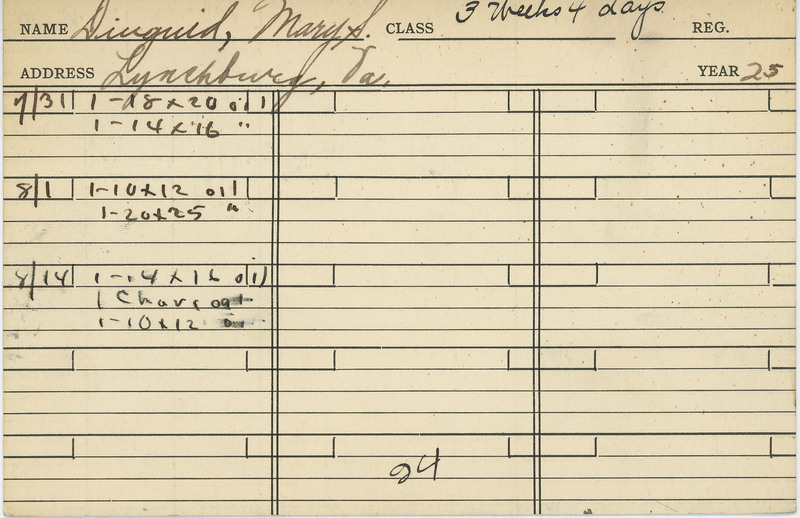 NAME Diuguid, Mary S. CLASS 3 Weeks 4 days REG.
ADDRESS Lynchburg, Va. YEAR 25
7/31 1-18x20 oil
1-14x16 "
8/1 1-10x12 oil
1-20x25 "
8/14 1-14x16 oil
1
1-10x12
24